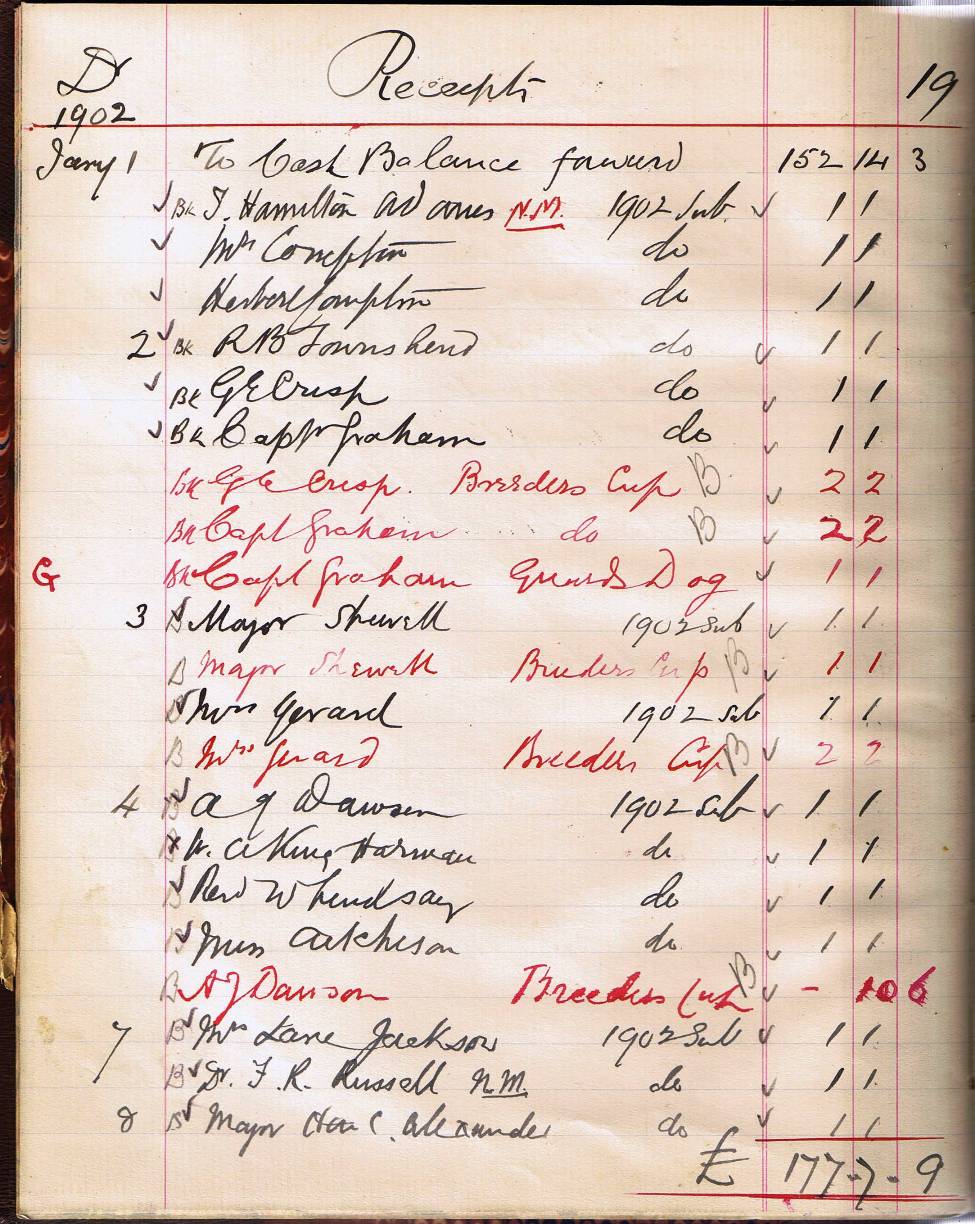 Dr Receipts 19
1902
Jany 1 To Cash Balance forward 152 14 3
Bk T. Hamilton Adams N.M. 1902 Sub. 1 1
Mrs Compton do 1 1
Herbert Compton do 1 1
2 Bk R B Townshend do 1 1
Bk G E Crisp do 1 1
Bk Capt Graham do 1 1
Bk G E Crisp. Breeders Cup B 2 2
Bk Capt Graham do B 2 2
G Bk Capt Graham Guards Dog 1 1
3 B Major Shewell 1902 Sub 1 1
B Major Shewell Breeders Cup B 1 1
B Mrs Gerard 1902 Sub 1 1
B Mrs Gerard Breeders Cup B 2 2
4 B A J Dawson 1902 Sub 1 1
B W. A King Harman do 1 1
B Revd W Lindsay do 1 1
B Miss Aitcheson do 1 1
B A J Dawson Breeders Cup B - 10 6
7 B Mrs Lane Jackson 1902 Sub 1 1
B Dr. F. R. Russell N.M. do 1 1
8 B Major Hon C. Alexander do 1 1
£ 177-7-9